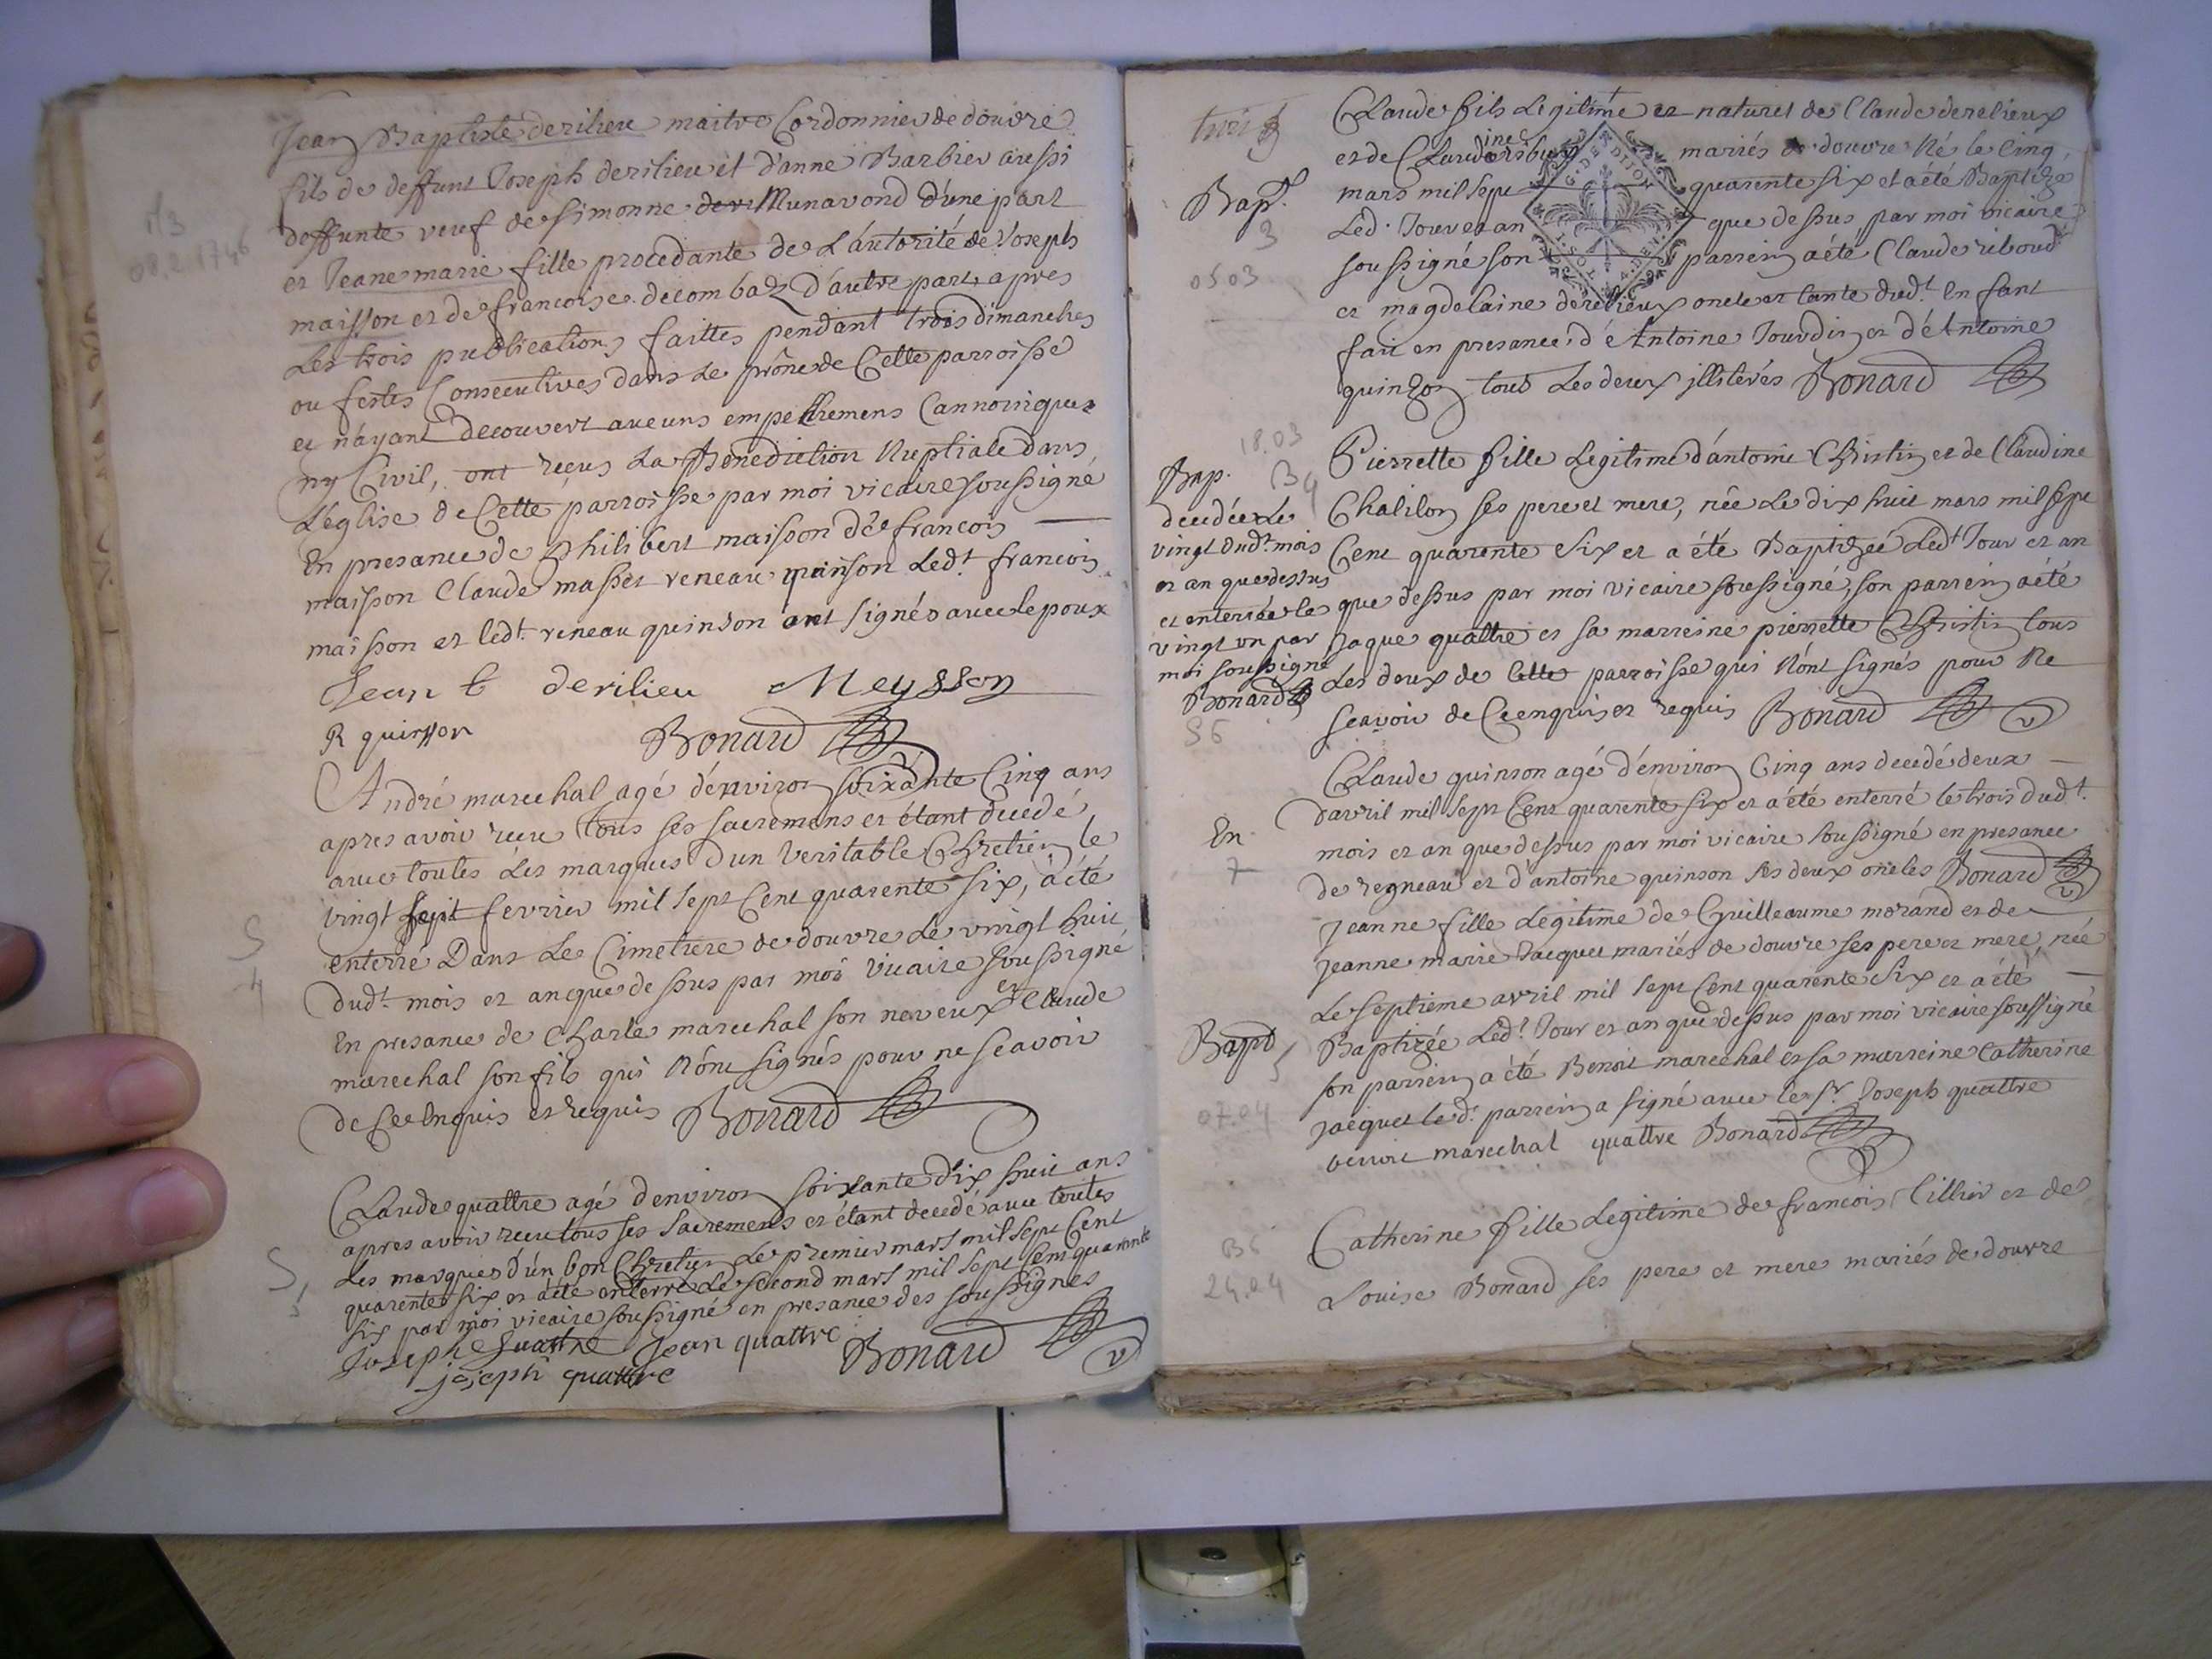 M3
08.2.1746
Jean Baptiste derilieu maitre Cordonnier de douvre
fils de deffunt Joseph derilieu et d'anne Barbier aussi
deffunte veuf de Simonne Munavond d'une part
et Jeane marie fille procedante de L'autorité de Joseph
maisson et de francoise decombaz d'autre part, apres
Les trois publications faittes pendant trois dimanches
ou festes Consecutives dans Le prône de Cette parroisse
et n'ayant decouvert aucuns empechemens Cannoniques
ny Civil, ont reçus La Benediction Nuptiale dans
L'église de Cette parroisse par moi vicaire soussigné
En presance de Philibert maisson de francois
maisson Claude masset reneau quinson Ledt. francois
maisson et ledt. reneau quinson ont signés avec le poux
Jean b derilieu Meysson
R quinsson Bonard
André marechal agé d'environ soixante Cinq ans
apres avoir receu tous ses sacremens et étant decedé
avec toutes Les marques d'un veritable Chretien le
vingt sept fevrier mil sept Cent quarente six, a été
S
4
enterré Dans Le Cimetiere de douvre Le vingt huit
dudt. mois et an que dessus par moi vicaire soussigné
En presance de Charle marechal son neveux et Claude
marechal son fils qui N'ont signés pour ne scavoir
de Ce Enquis et requis Bonard
Claude quattre agé d'environ soixante Dix huit ans
apres avoir receu tous ses sacremens et étant decedé avec toutes
S
5
Les marques d'un bon Chretien Le premier mars mil sept Cent
quarente six et a été enterré Le second mars mil sept Cent quarente
six par moi vicaire soussigné en presance des soussignés
Joseph Quattre Jean quattre Bonard
joseph quattre
Claude fils Legitime et naturel de Claude derelieux
et de Claudine mariés de douvre Né le Cinq
Bapt.
3
05.03
mars mil sept quarente six et a été Baptizé
Led. Jour et an que dessus par moi vicaire
soussigné son parrein a été Claude riboud
et magdelaine derelieux oncle et tante dudt. Enfant
fait en presance d'Antoine Jourdin et d'Antoine
quinson tous Les deux illiterés Bonard
18.03
B4
Bap.
decedée Le
vingt dudt. mois
et an que dessus
et enterrée le
vingt un par
moi soussigné
Bonard
S6
Pierrette fille Legitime d'antoine Christin et de Claudine
Chalilon ses pere et mere, née Le dix huit mars mil sept
Cent quarente six et a été Baptizée Ledt. Jour et an
que dessus par moi vicaire soussigné, son parrein a été
Jaque quattre et sa marreine pierrette Christin tous
Les deux de Cette parroisse qui N'ont signés pour Ne
scavoir de Ce enquis et requis Bonard
Claude quinson agé d'environ Cinq ans decedé deux
d'avril mil sept Cent quarente six et a été enterré le trois dudt.
En
7
mois et an que dessus par moi vicaire soussigné en presance
de regneau et d'antoine quinson ses deux oncles Bonard
Jeanne fille Legitime de Guilleaume morand et de
Jeanne marie Jacquet mariés de douvre ses pere et mere, née
Le septieme avril mil sept Cent quarente six et a été
Bapt
5
07.04
Baptizée Led. Jour et an que dessus par moi vicaire soussigné
son parrein a été Benoit marechal et sa marreine Catherine
jacquet le d. parrein a signé avec le Sr. Joseph quattre
benoit marechal quattre Bonard
B6
24.04
Catherine fille Legitime de francois Tillier et de
Louise Bonard ses pere et mere mariés de douvre